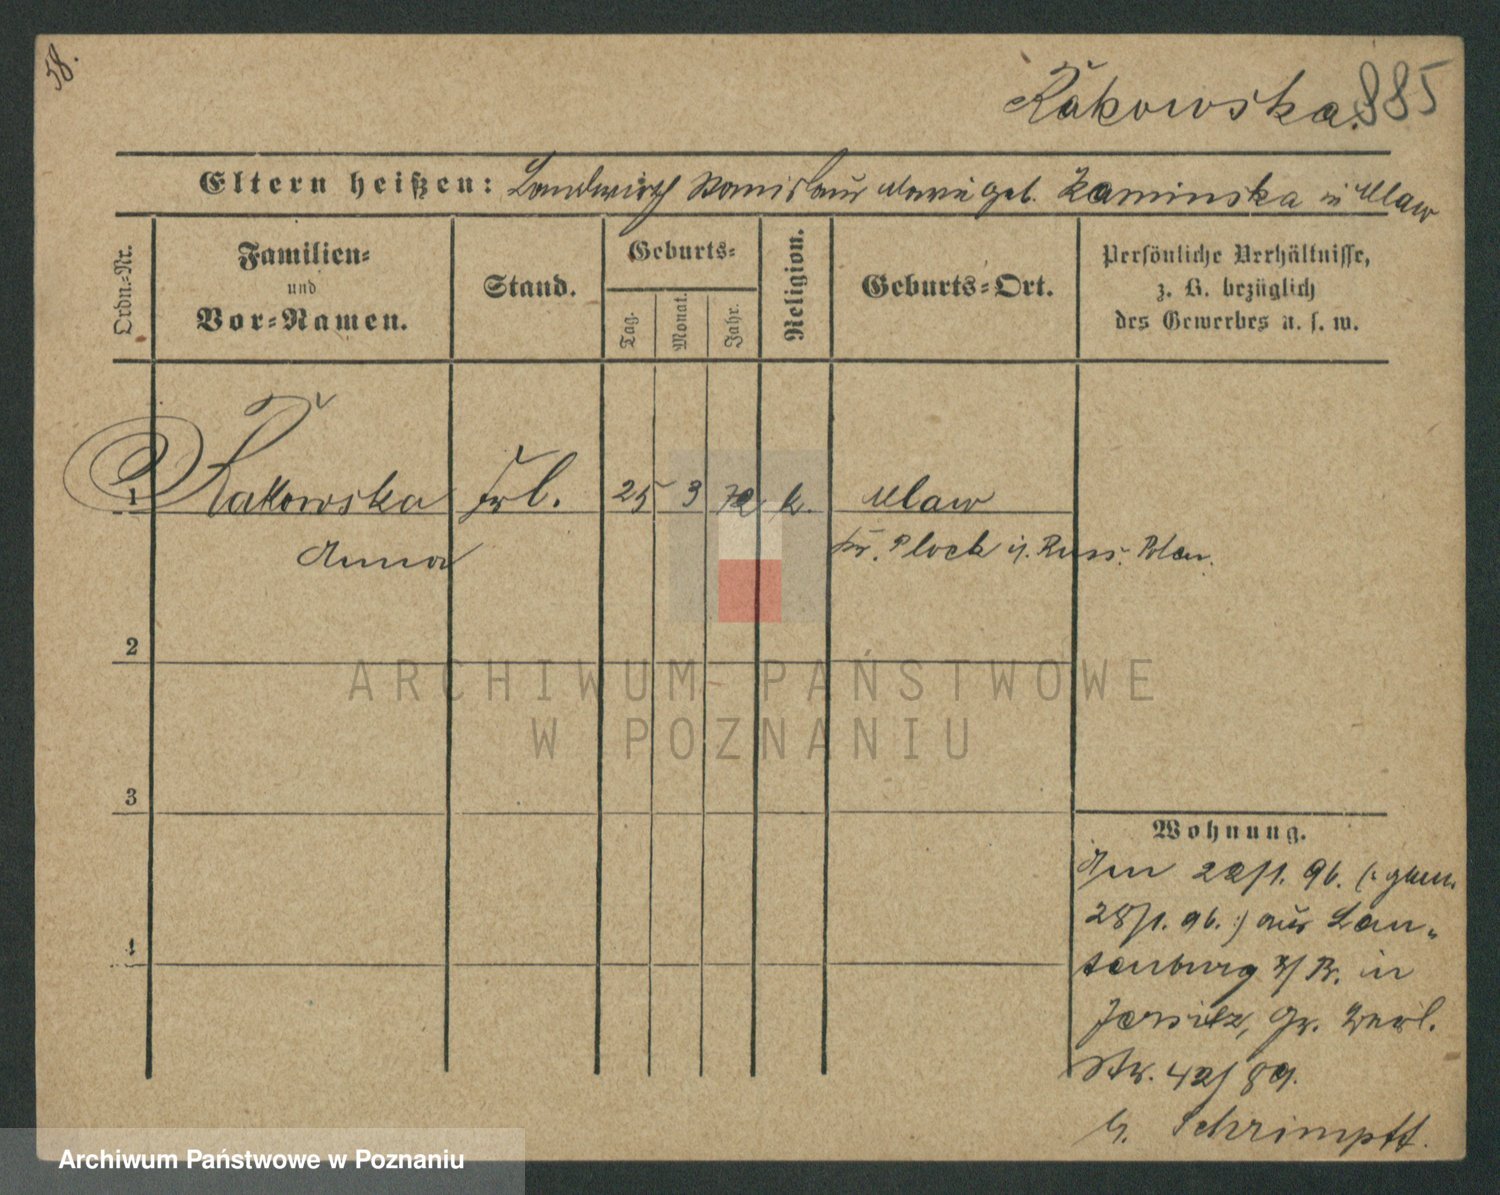 58.
Rakowska. 885
Eltern heißen: Landwirth Stanislaus Marie geb. Kaminska in Mlaw
Ordn.-Nr.
Familien-
und
Vor-Namen.
Stand.
Geburts-
Tag.
Monat.
Jahr.
Religion.
Geburts-Ort.
Persönliche Verhältnisse,
z. B. bezüglich
des Gewerbes u. s. w.
1 Rakowska Frl. 25 3 72 k. Mlaw
Anna Kr. Plock i. Russ. Polen.
2
ARCHIWUM PAŃSTWOWE
W POZNANIU
3
Wohnung.
Am 22/1. 96. (: gem.
28/1. 96. :) aus Lau-
tenburg W/Pr. in
Jersitz, Gr. Berl.
Str. 42/89.
b. Schrimpff.
4
Archiwum Państwowe w Poznaniu